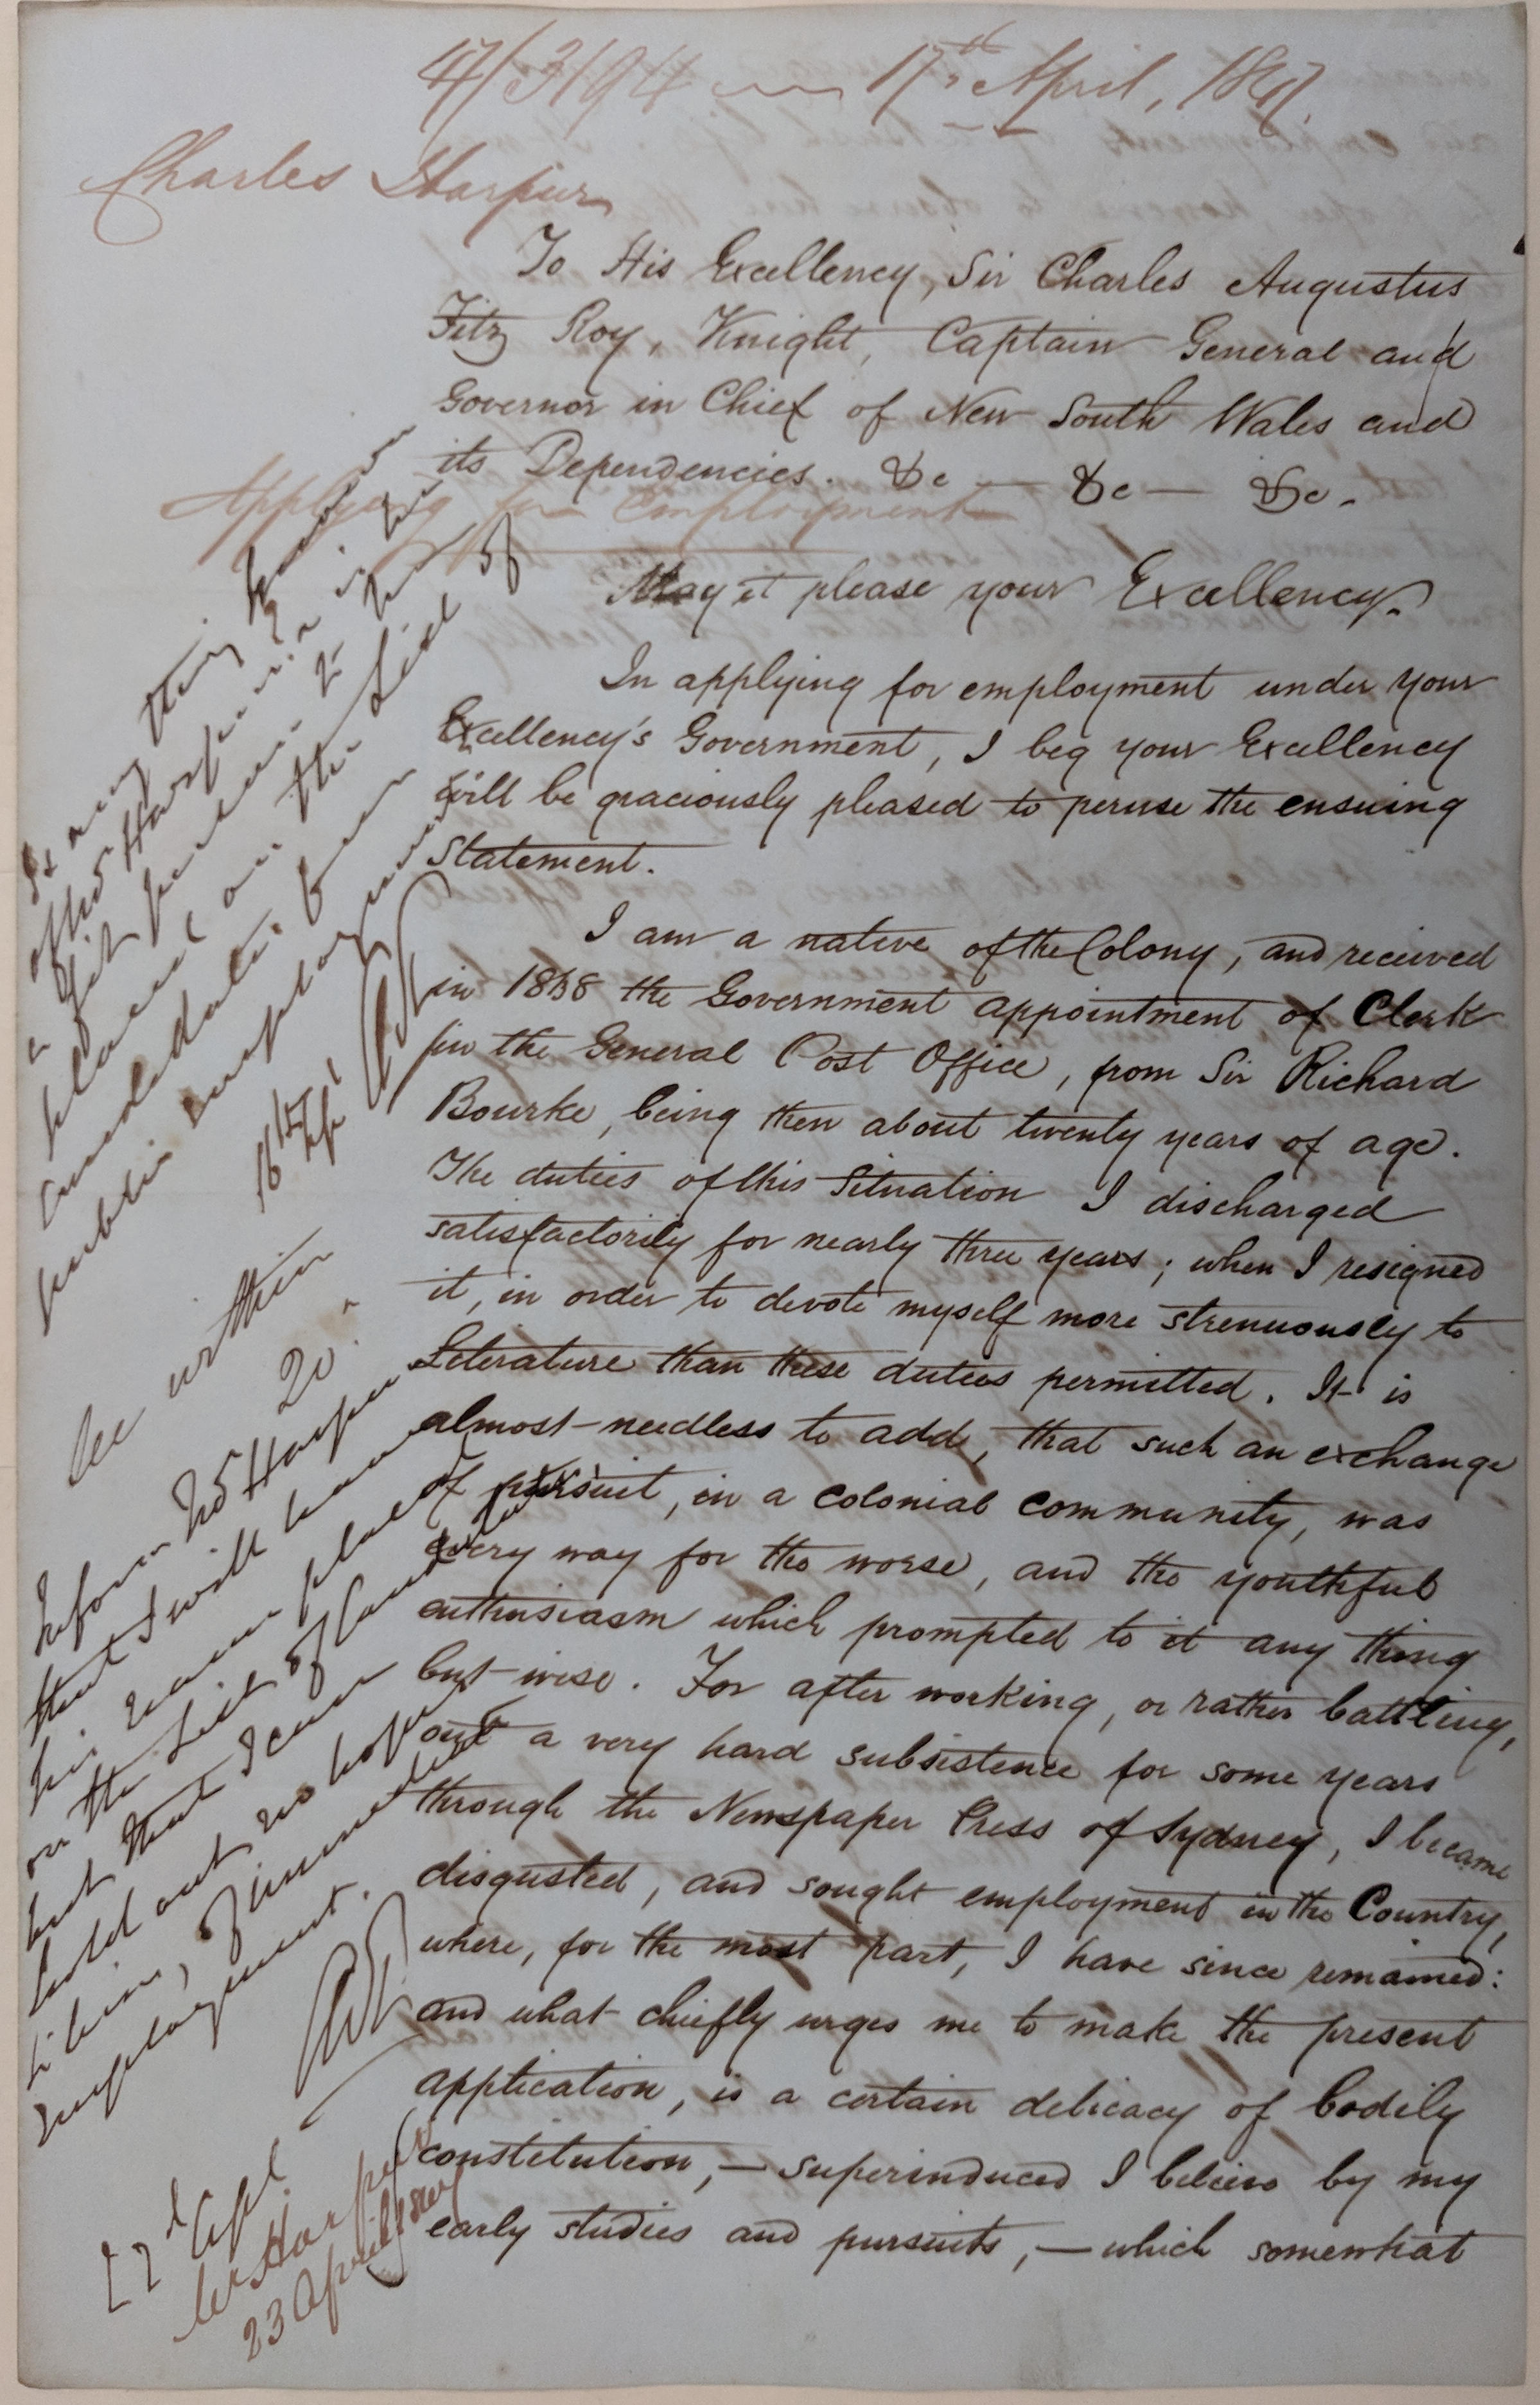 47/3194 17th April, 1847.
Charles Harpur
To His Excellency, Sir Charles Augustus
Fitz Roy, Knight, Captain General and
Governor in Chief of New South Wales and
its Dependencies. &c — &c — &c.
Applying for Employment
May it please your Excellency.
In applying for employment under your
Excellency's Government, I beg your Excellency
will be graciously pleased to peruse the ensuing
Statement.
I am a native of the Colony, and received
in the Government appointment of Clerk
in the General Post Office, from Sir Richard
Bourke, being then about twenty years of age.
The duties of this Situation I discharged
satisfactorily for nearly three years; when I resigned
it, in order to devote myself more strenuously to
Literature than these duties permitted. It is
almost needless to add, that such an exchange
of pursuit, in a colonial community, was
every way for the worse, and the youthful
enthusiasm which prompted to it any thing
but wise. For after working, or rather battling,
out a very hard subsistence for some years
through the Newspaper Press of Sydney, I became
disgusted, and sought employment in the Country,
where, for the most part, I have since remained:
and what chiefly urges me to make the present
application, is a certain delicacy of bodily
constitution, — superinduced I believe by my
early studies and pursuits, — which somewhat
Is any thing known
of Mr Harpur
a fit person to
placed on the List of
Candidates for
public employment
16th Apl
See within
20
Inform Mr Harpur
that I will have
his name placed
on the List of Candidates
but that I can
hold out no hopes
to him, of immediate
employment.
22d Apl
Mr Harpur
23 April